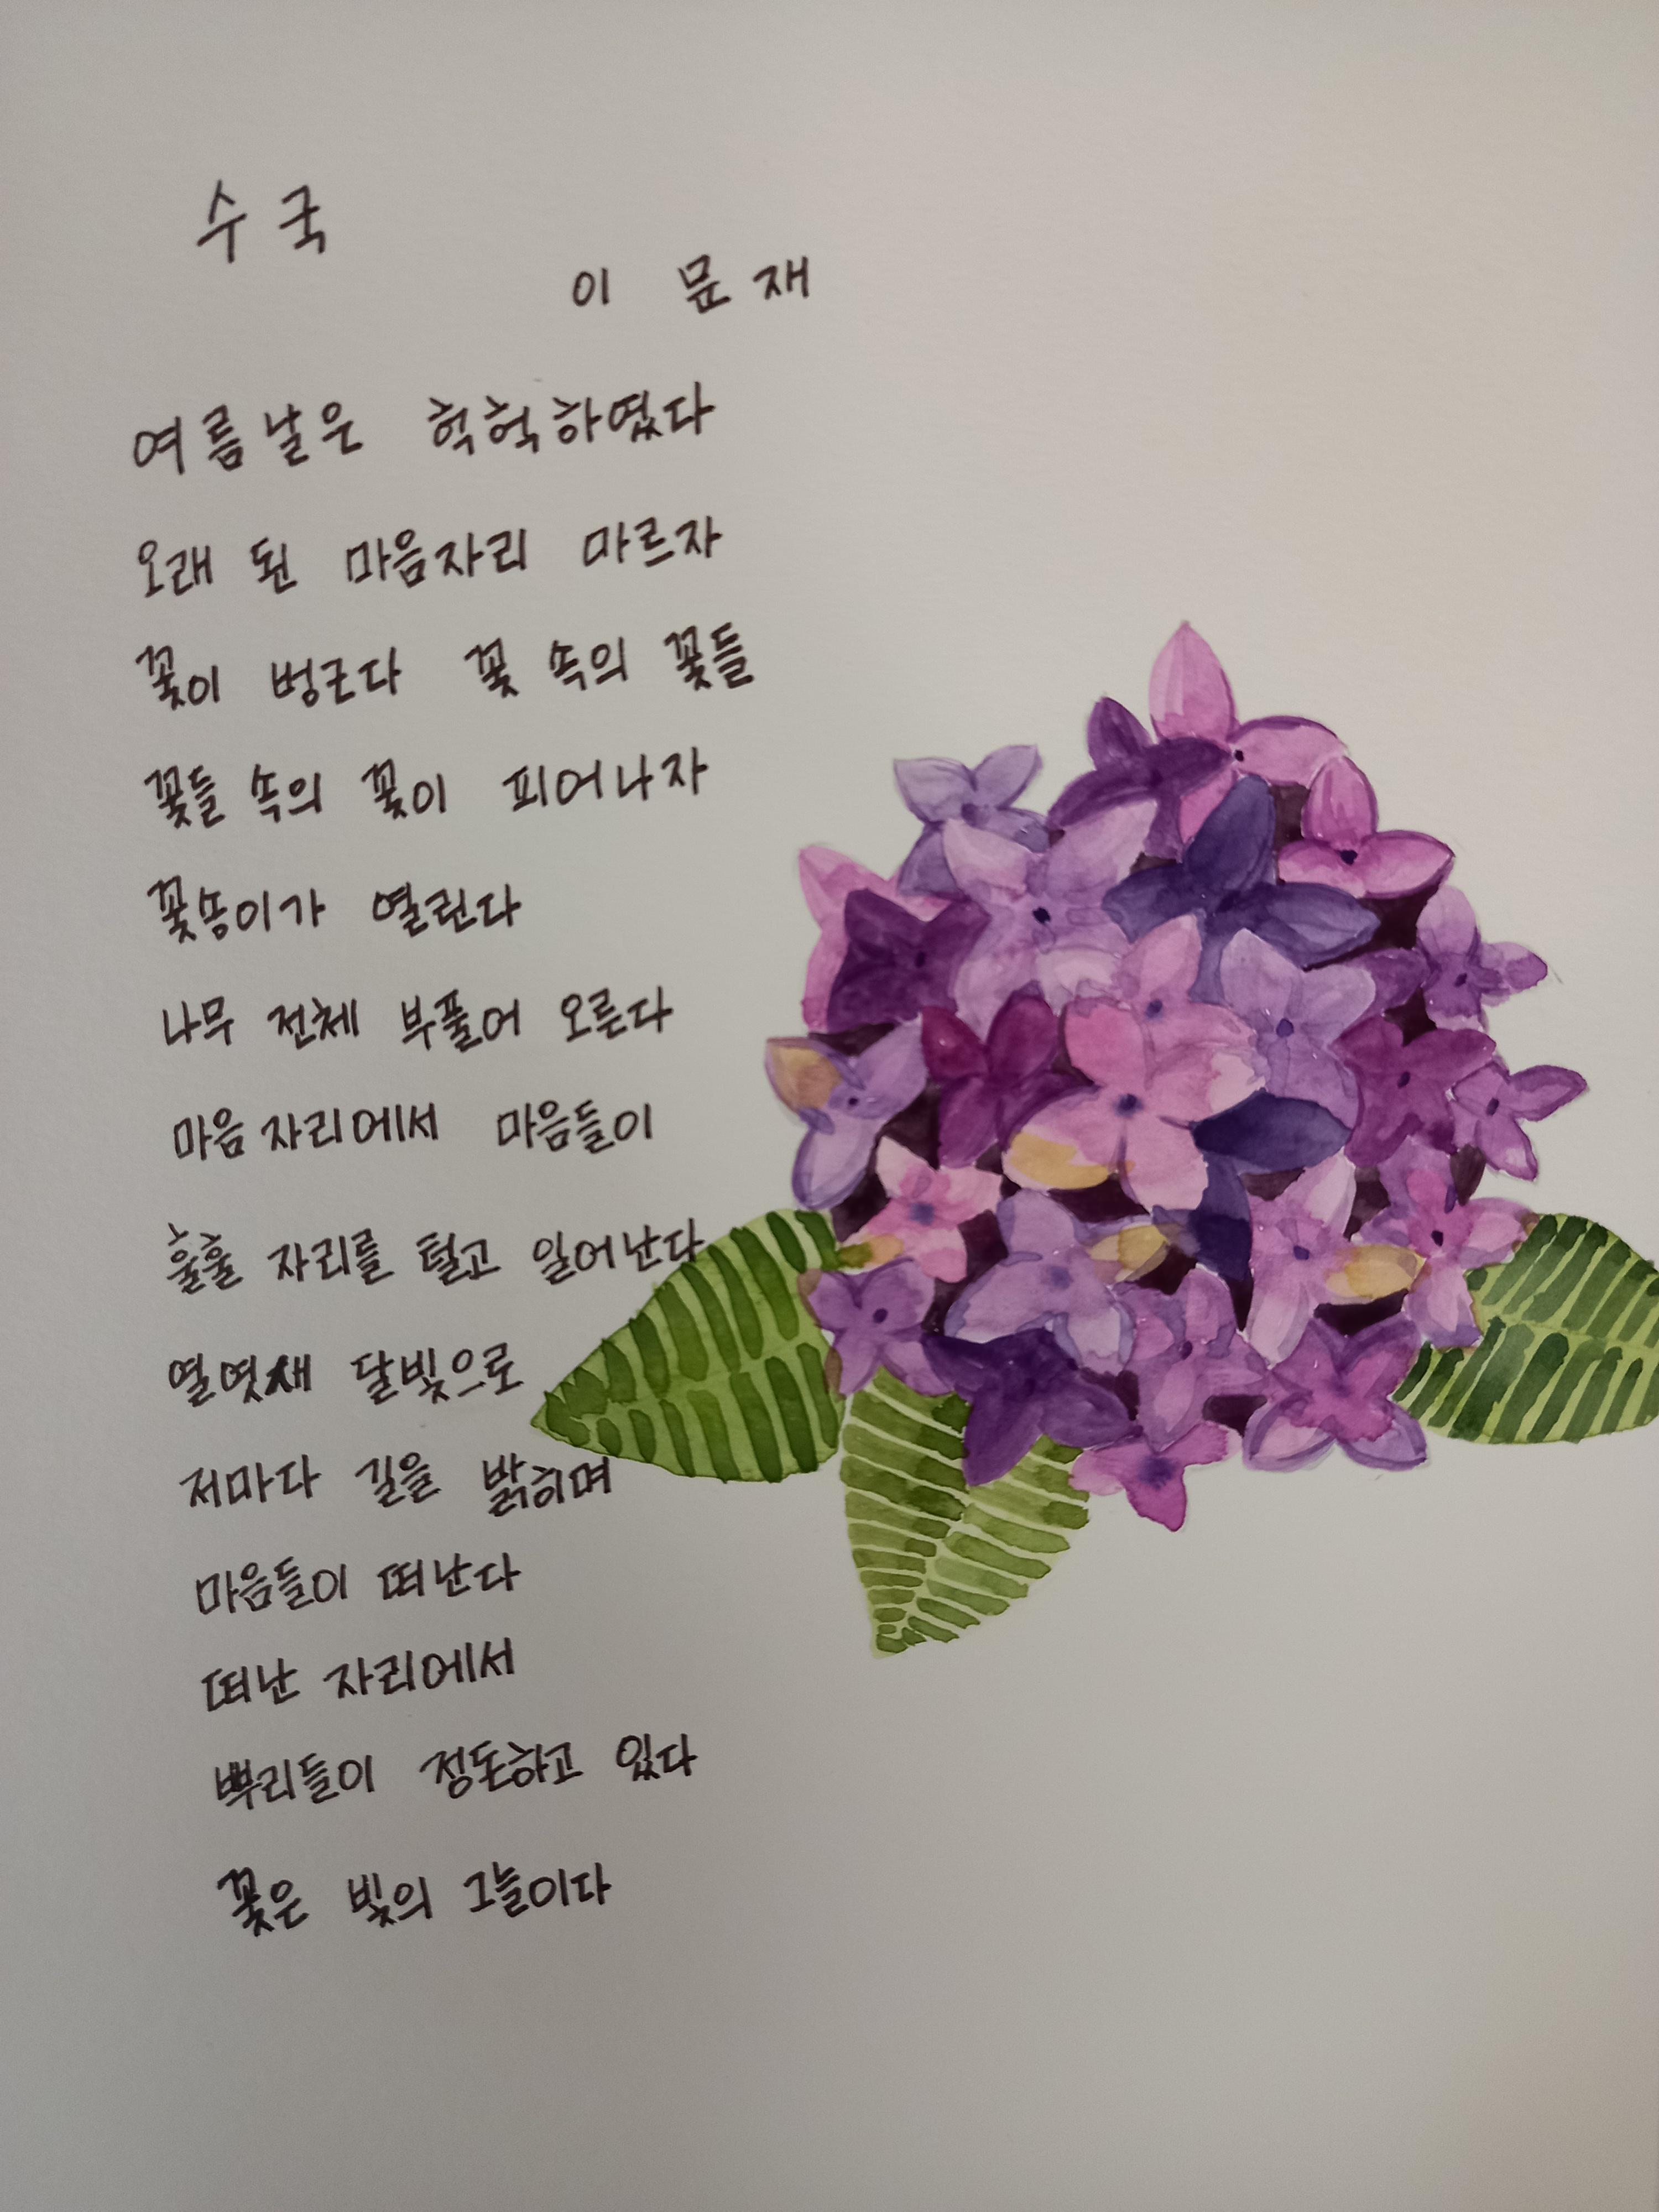 수국
이 문 재
여름날은 헉헉하였다
오래 된 마음자리 마르자
꽃이 벙근다 꽃 속의 꽃들
꽃들 속의 꽃이 피어나자
꽃송이가 열린다
나무 전체 부풀어 오른다
마음자리에서 마음들이
훌훌 자리를 털고 일어난다
열엿새 달빛으로
저마다 길을 밝히며
마음들이 떠난다
떠난 자리에서
뿌리들이 정돈하고 있다
꽃은 빛의 그늘이다